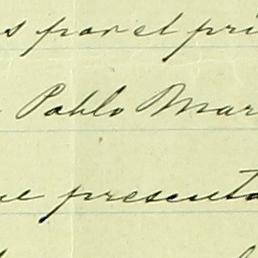 s por el pri
Pablo Mar
ue presenta